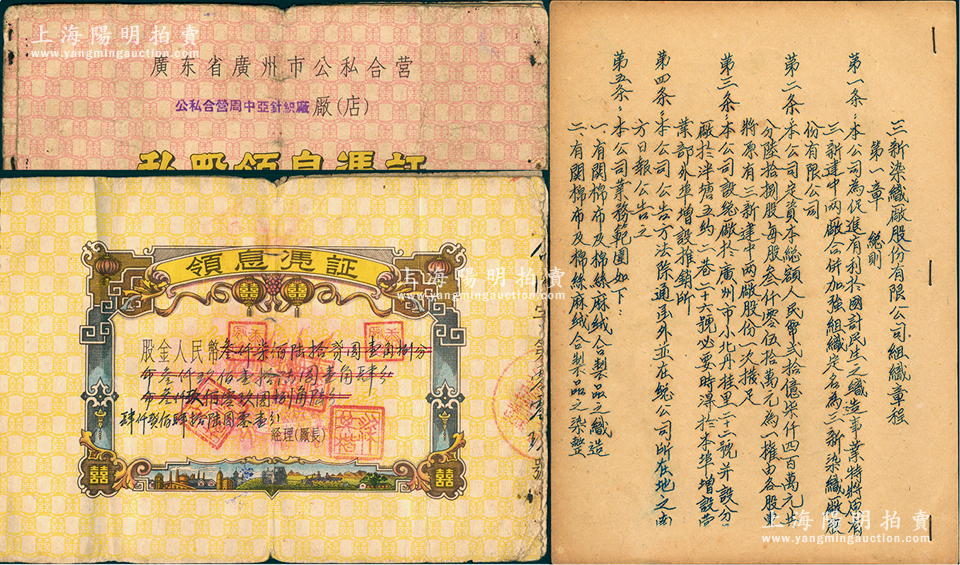 上海陽明拍賣
www.yangmingauction.com
廣东省廣州市公私合营
公私合营周中亞針織廠 廠(店)
私股領息憑証
領息憑証
股金人民幣叁仟柒佰陸拾貳圓壹角捌分
肆仟貳佰肆拾陸圓零壹分
經理(廠長)
三新染織廠股份有限公司組織章程
第一章 總則
第一条:本公司為促進有利於國計民生之織造事業特將原有
三新建中两廠合併加強組織定名為三新染織廠股
份有限公司
第二条:本公司定資本總額人民幣弍拾億柒仟四百萬元共
分陸拾捌股每股叁仟零伍拾萬元為一權由各股東
將原有三新建中两廠股份一次撥足
第三条:本公司設總廠於廣州市小北丹桂里二十二號并設分
廠於泮塘五約二巷二十六號必要時得於本埠增設營
業部外埠增設推銷所
第四条:本公司公告方法除通函外並在總公司所在地之南
方日報公告之
第五条:本公司業務範圍如下:
一、有関棉布及棉絲麻絨合製品之織造
二、有関棉布及棉絲麻絨合製品之染整
上海陽明拍賣
www.yangmingauction.com